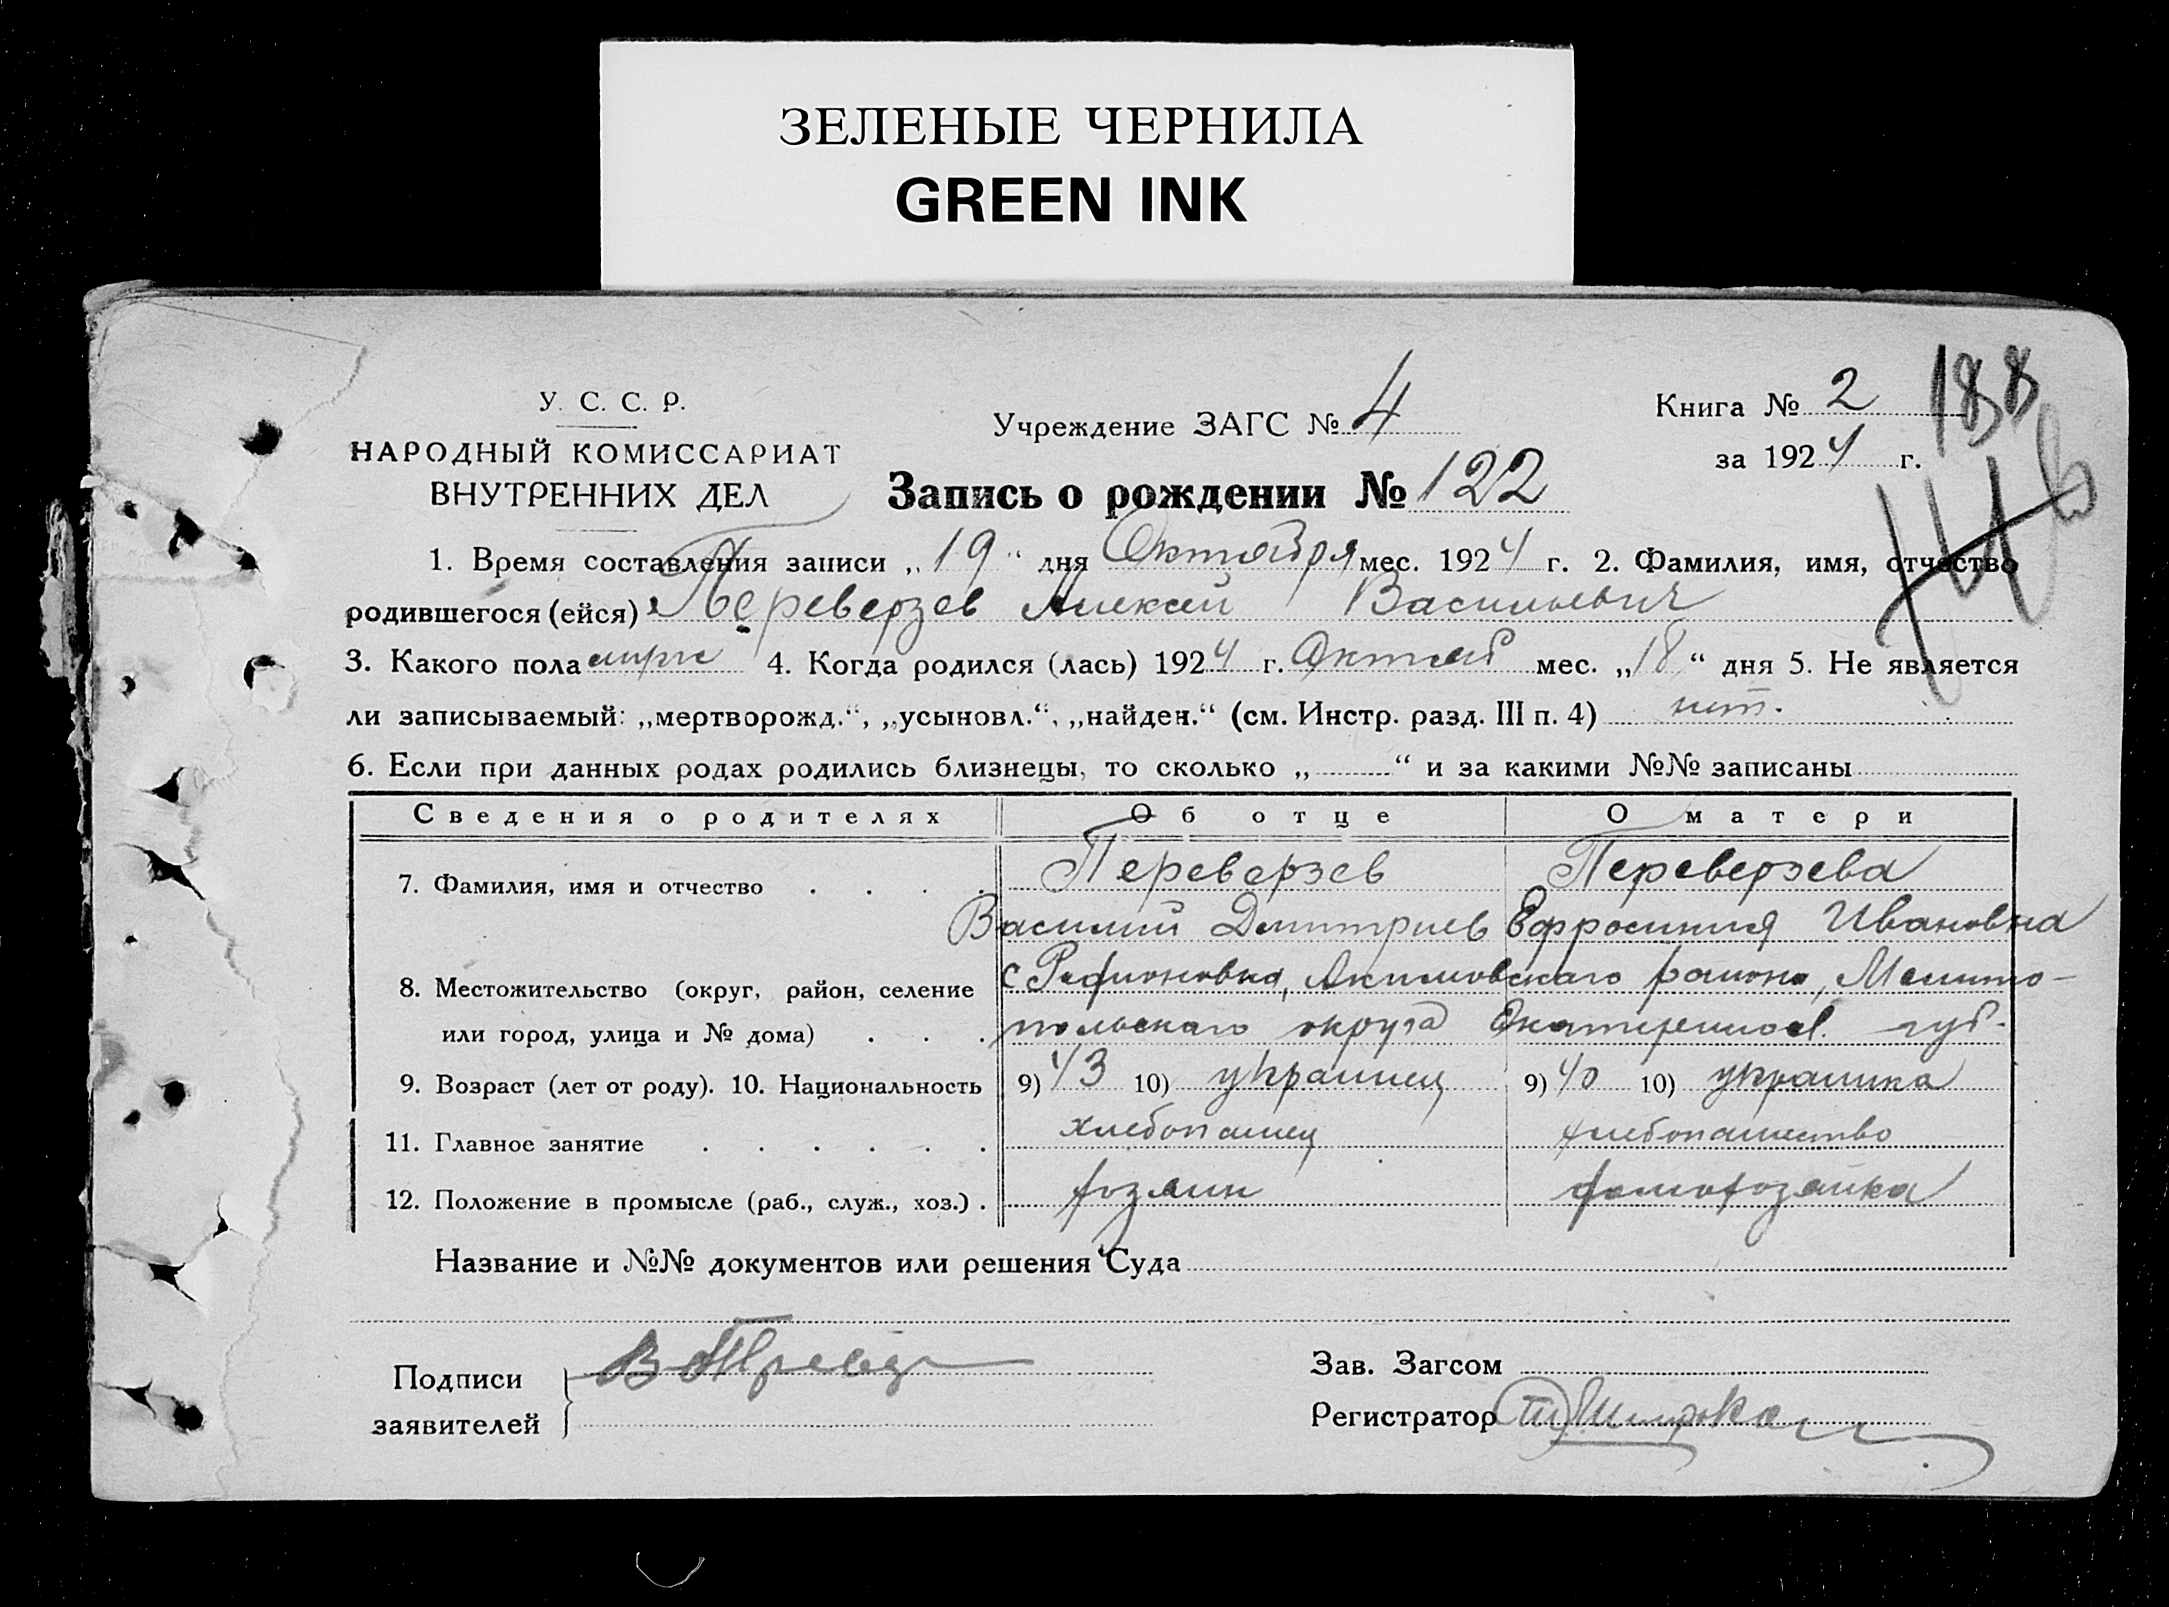 ЗЕЛЕНЫЕ ЧЕРНИЛА
GREEN INK
188
У. С. С. Р.
НАРОДНЫЙ КОМИССАРИАТ
ВНУТРЕННИХ ДЕЛ
Учреждение ЗАГС № 4
Книга № 2
за 1924 г.
Запись о рождении № 122
1. Время составления записи „19“ дня Октября мес. 1924 г. 2. Фамилия, имя, отчество
родившегося (ейся) Переверзев Алексей Васильевич
3. Какого пола муж 4. Когда родился (лась) 1924 г. Октяб мес. „18“ дня 5. Не является
ли записываемый: „мертворожд.“, „усыновл.“, „найден.“ (см. Инстр. разд. III п. 4) нет.
6. Если при данных родах родились близнецы, то сколько „ “ и за какими №№ записаны
Сведения о родителях Об отце О матери
7. Фамилия, имя и отчество . . . . Переверзев Переверзева
Василий Дмитриев Ефросиния Ивановна
8. Местожительство (округ, район, селение с Родионовка, Акимовскаго района, Мелито-
или город, улица и № дома) . . . польскаго округа Екатеринос. губ.
9. Возраст (лет от роду). 10. Национальность 9) 43 10) украинец 9) 40 10) украинка
11. Главное занятие . . . . . . хлебопашец хлебопашество
12. Положение в промысле (раб., служ., хоз.) . хозяин домохозяйка
Название и №№ документов или решения Суда
Подписи
заявителей
Зав. Загсом
Регистратор